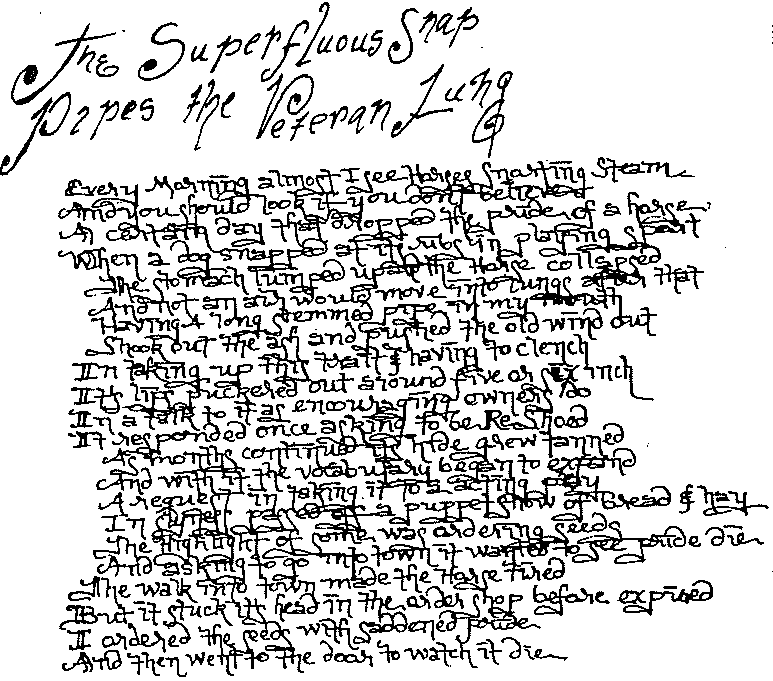 The Superfluous Snap
Pipes the Veteran Lung
Every Morning almost I see Horses Snorting Steam
And you should look if you don't believe
A certain day that dropped the pride of a horse
When a dog snapped at its ribs in playing sport
The stomach jumped up and the Horse collapsed
And not an air would move into lungs after that
Having A long stemmed pipe in my mouth
I Shook out the ash and pushed the old wind out
In taking up this draft & having to clench
Its lips puckered out around five or six inch
In a talk to it as encouraging owners do
It responded once asking to be Re-Shoed
As months continued its hide grew tanned
And with it the vocabulary began to expand
A request in taking it to a acting play
In passed as a puppet show of Bread & hay
The highlight of some was ordering seeds
And asking to go into town it wanted to see pride die
The walk into town made the Horse tired
But it stuck its head in the order shop before expired
I ordered the seeds with saddened pride
And then went to the door to watch it die